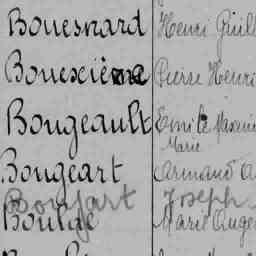 Bouesnard Henri Guill
Bouexière Pierre Henri
Bougeault Emile
Marie
Bougeart Armand A
Boujart Joseph
Boulae Marie Ange